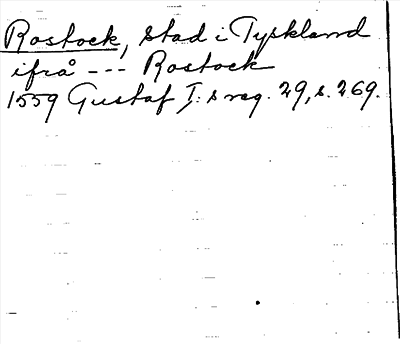 Rostock, stad i Tyskland
ifrå --- Rostock
1559 Gustaf I:s reg. 29, s. 269.